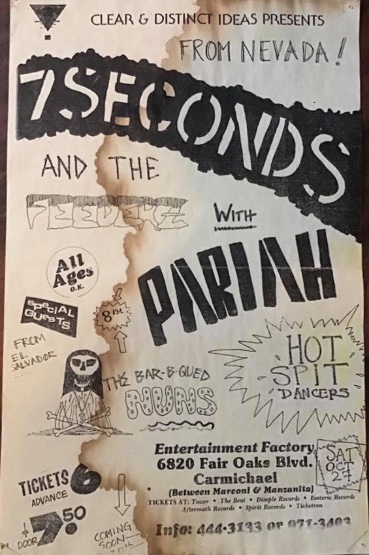 CLEAR & DISTINCT IDEAS PRESENTS
FROM NEVADA!
7 SECONDS
AND THE
FEEDERZ WITH
PARIAH
All
Ages
O.K.
SPECIAL
GUESTS
8PM
FROM
EL
SALVADOR
THE BAR-B-QUED
NUNS
HOT
SPIT
DANCERS
Entertainment Factory
6820 Fair Oaks Blvd.
Carmichael
(Between Marconi & Manzanita)
SAT
OCT
27
TICKETS AT: Tower • The Beat • Dimple Records • Esoteric Records
Aftermath Records • Spirit Records • Ticketron
TICKETS 6
ADVANCE
DOOR 7.50
COMING
SOON
Info: 444-3133 or 971-3403